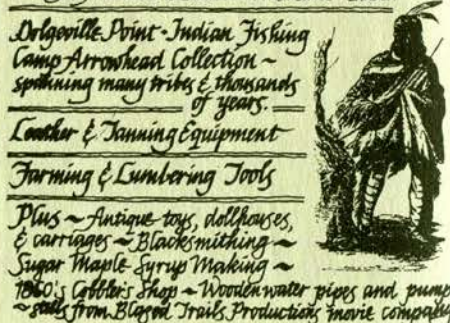 Dolgeville Point - Indian Fishing
Camp Arrowhead Collection ~
spanning many tribes & thousands
of years.
Leather & Tanning Equipment
Farming & Lumbering Tools
Plus ~ Antique toys, dollhouses,
& carriages ~ Blacksmithing ~
Sugar Maple Syrup Making ~
1860's Cobbler's Shop ~ Wooden water pipes and pump
~ stills from Blazed Trails Productions movie company